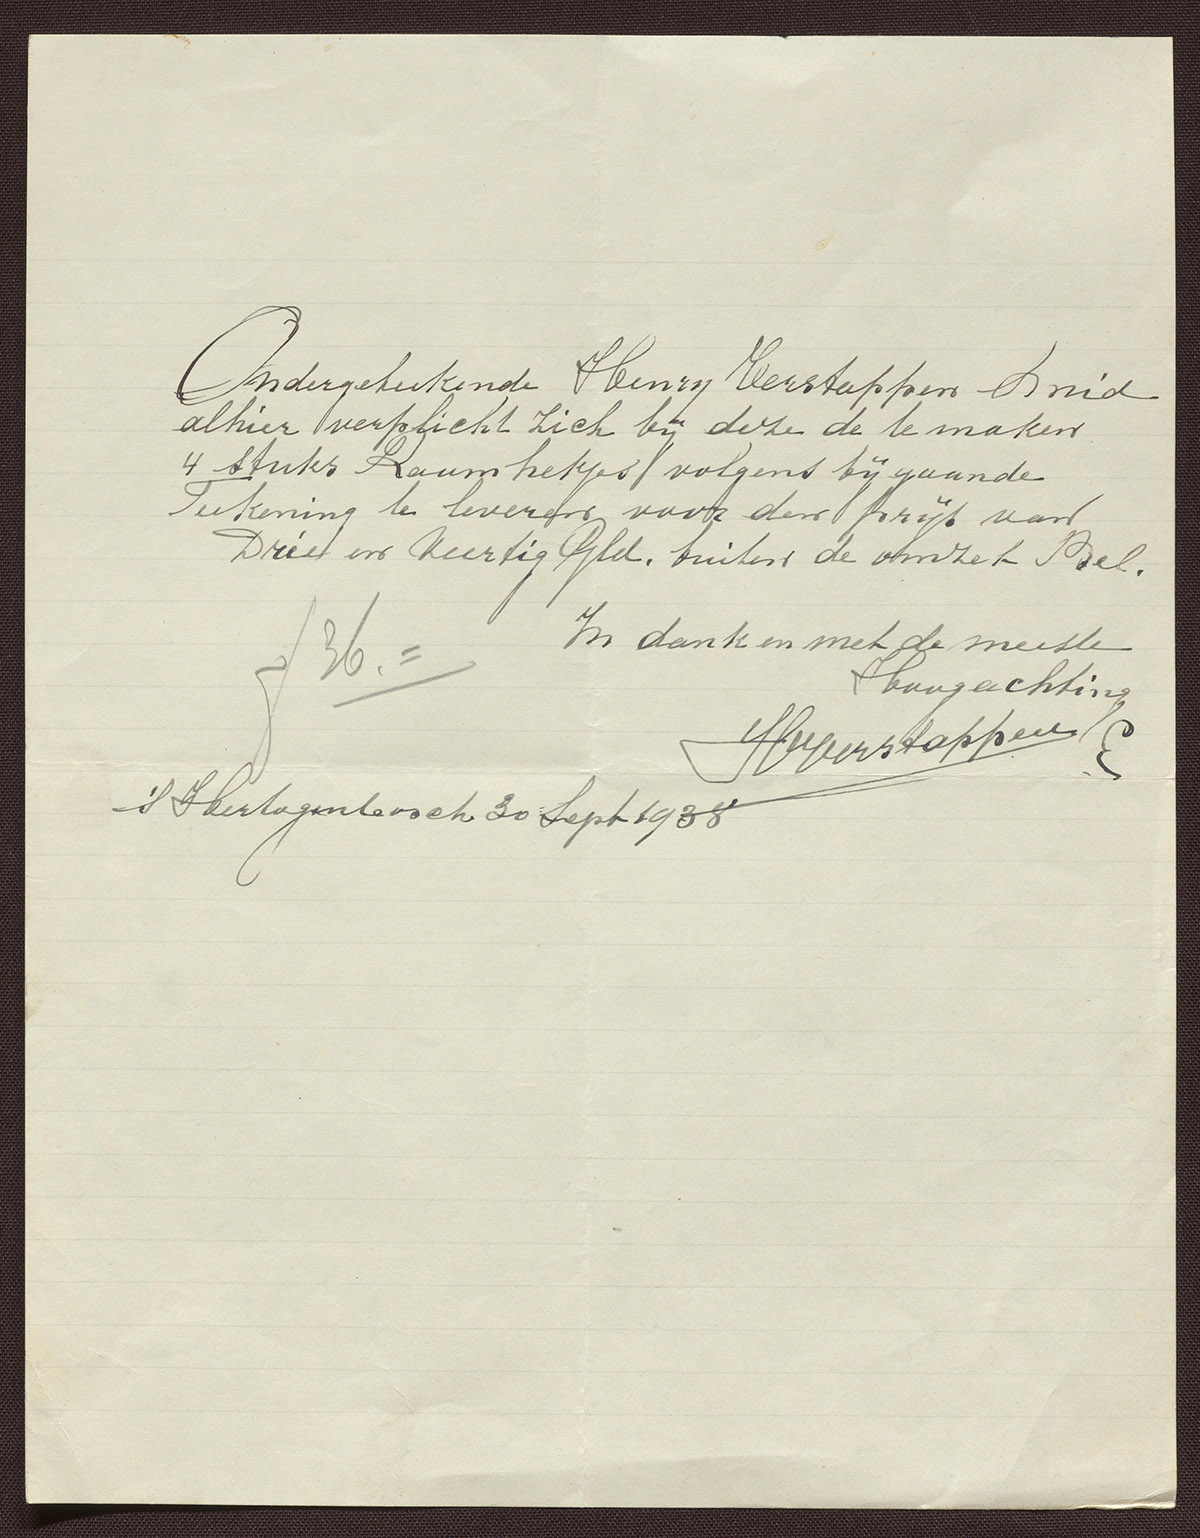 Ondergeteekende Henry Verstappen Smid
alhier verplicht zich bij deze de te maken
4 stuks Raamhekjes volgens bijgaande
Teekening te leveren voor den prijs van
Drie en Veertig Gld. buiten de omzet Bel.
f 36.=
In dank en met de meeste
Hoogachting
HVerstappen
's Hertogenbosch 30 Sept 1938